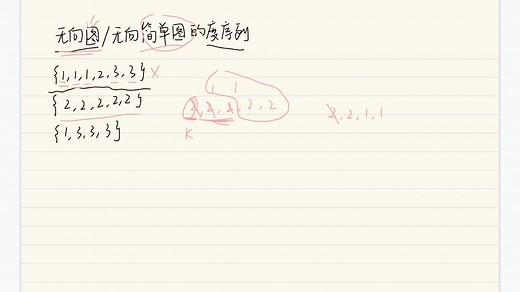 无向图/无向简单图的度序列
{1,1,1,2,3,3} X
{2,2,2,2,2}
1 1
2,2,2,2,2
2,2,1,1
{1,3,3,3}
K